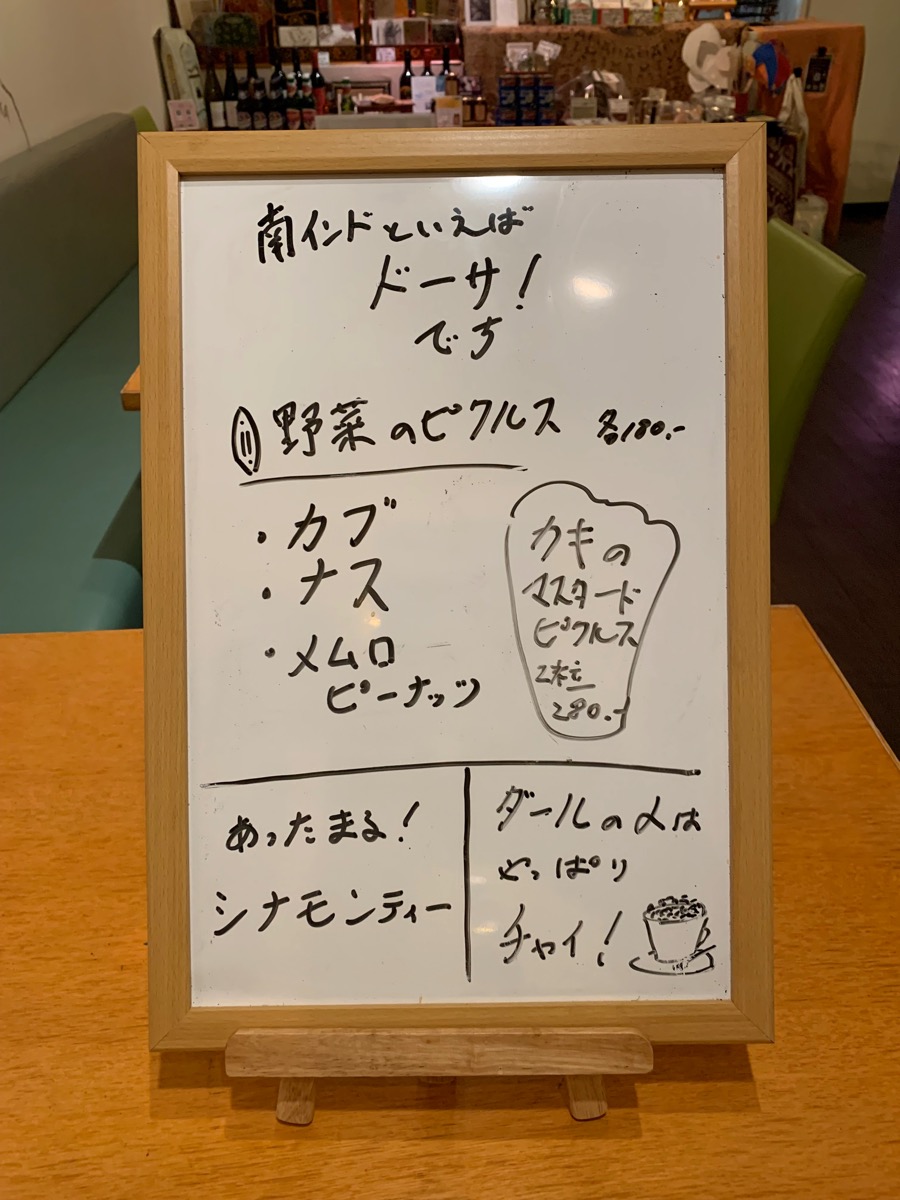 南インドといえば
ドーサ!
でち
野菜のピクルス 各180.-
・カブ
・ナス
・メムロ
ピーナッツ
カキの
マスタード
ピクルス
2粒
280.-
あったまる!
シナモンティー
ダールの〆は
やっぱり
チャイ!